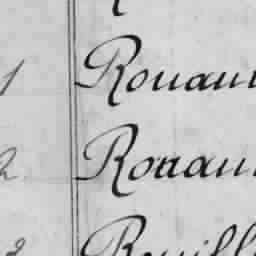 1 Rouau
2 Rouau
3 Rouill